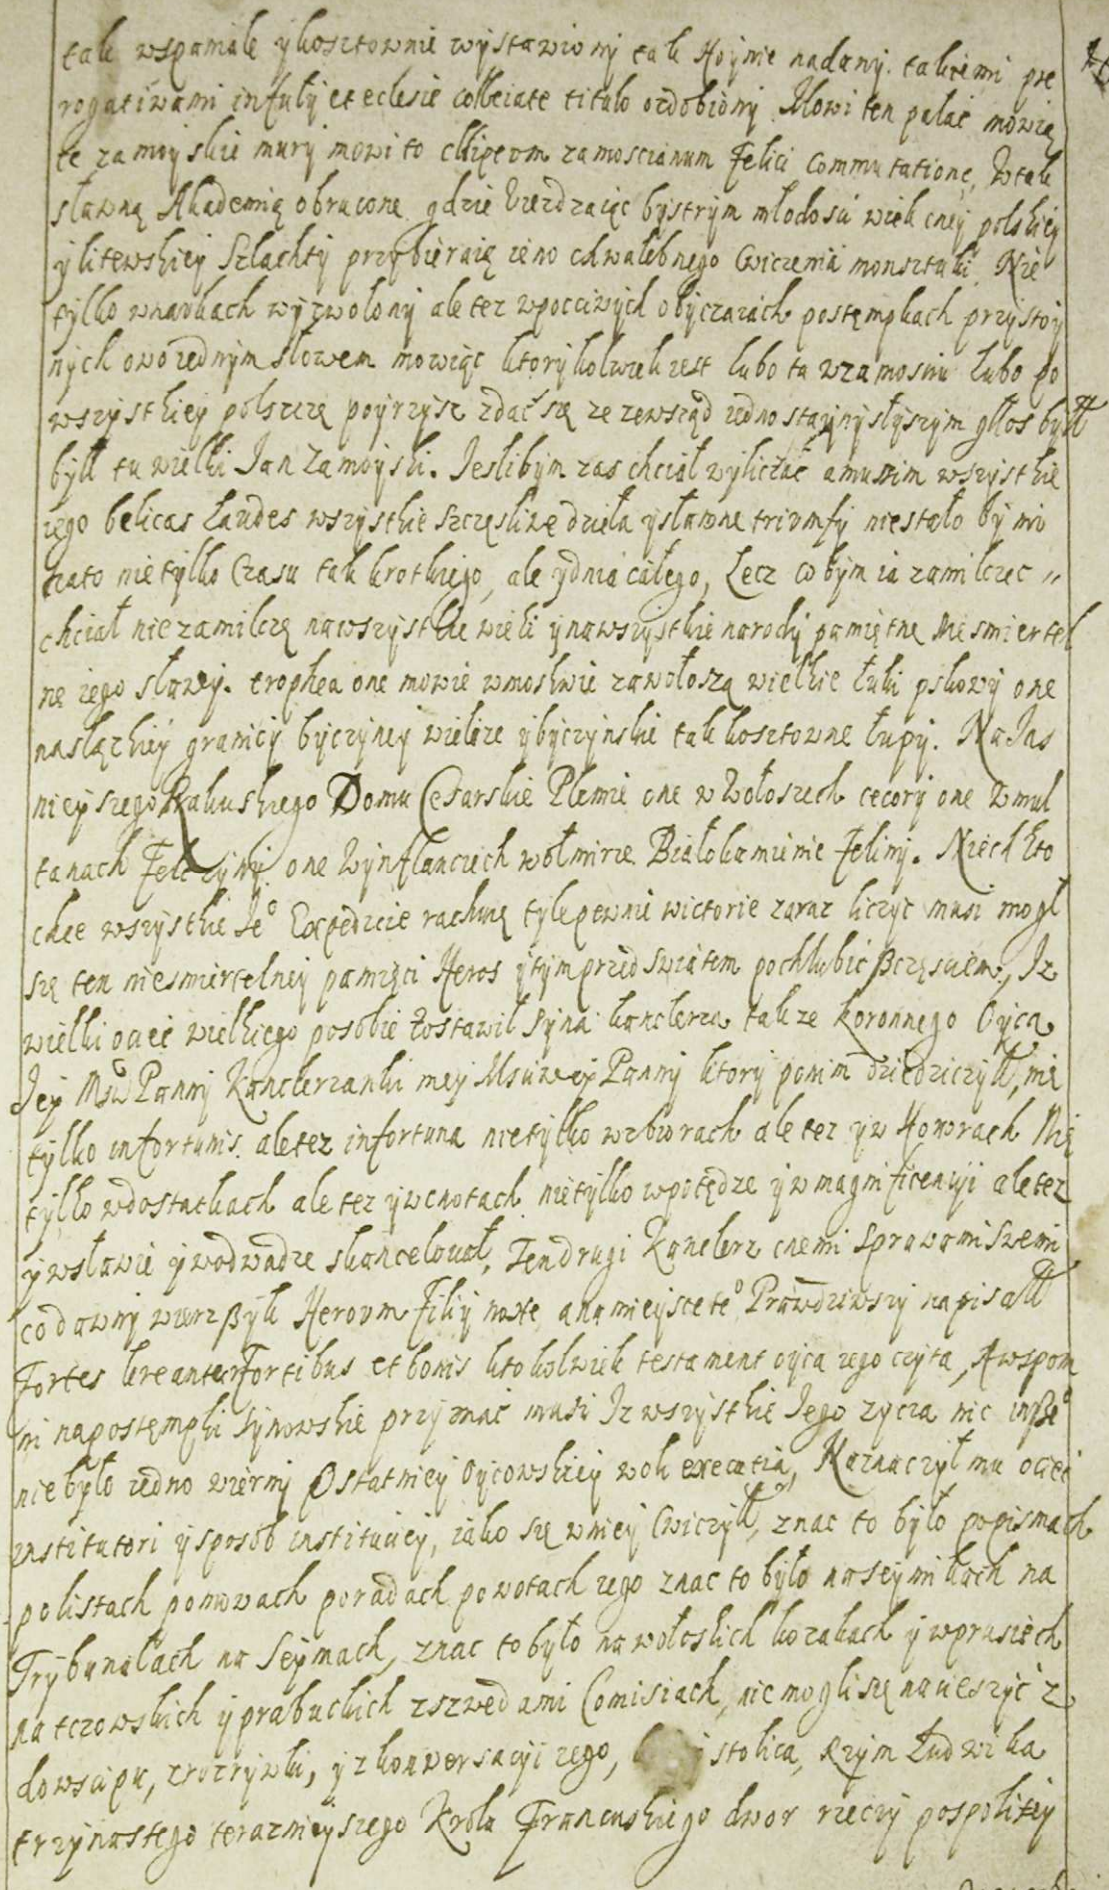 tak wspaniale y kosztownie wystawiony tak Hoynie nadany. takiemi pre
rogatiwami infuły et eclesie colleiate titulo ozdobiony Mowi ten pałac mowią
te zamoyskie mury mowi to clipeum zamoscianum Felici commutatione, W tak
sławną Akademią obrucone gdzie wiezdzaiąc bystrym młodosci wiek cney polskiey
y litewskiey Szlachty przybieraią ieno chwalebnego Cwiczenia monsztuki. Nie
tylko w naukach wyzwolony ale tez w pocciwych obyczaiach postęmpkach przystoy
nych owo iednym słowem mowiąc ktorykolwiek iest lubo tu w zamosciu lubo po
wszystkiey polszczę poyrzysz zdac się ze zewsząd iednostayny słyszym głos byłł
byłł tu wielki Jan Zamoyski. Jeslibym zas chciał wyliczac a musim wszystkie
iego belicas Laudes wszystkie szczęsliwe dzieła y sławne triumfy niestało by mi
nato nie tylko Czasu tak krotkiego, ale y dnia całego, Lecz co bym ia zamilczec //
chciał nie zamilczą na wszystkie wieki y na wszystkie narody pamiętne Niesmiertel
ne iego sławy. trophea one mowie w moskwie zawołoszą wielkie łuki pskowy one
na sląskiey granicy byczyney wielkie y byczynskie tak kosztowne łupy. Na Jas
nieyszego Rakuskiego Domu Cesarskie Plemie one w Wołoszech cecory one w mul
tanach Telezyny one w ynflanciech wolmirze Białokamienie Feliny. Niech kto
chce wszystkie Je° Expedicie rachuię tyle pewnie wictorie zaraz liczyc musi mogł
się ten niesmiertelney pamięci Heros y tym przed swiatem pochlubic szczęsciem, Iz
wielki ociec wielkiego po sobie zostawił syna kanclerza takze koronnego Oyca
Jey Msci Panny Kanclerzanki mey Msciwey Panny ktory po nim dziedziczyłł, nie
tylko in fortunis. ale tez in fortuna nie tylko w zbiorach ale tez y w Honorach Nie
tylko w dostatkach ale tez y w cnotach nie tylko w potędze y w magnificencyi ale tez
y w sławie y w odwadze skancelował, Ten drugi Kanclerz cnemi sprawami swemi
co dawny wierszyk Heroum Filij noxe a na mieysce te° Prawdziwszy napisałł
Fortes kreantur Fortibus et bonis ktokolwiek testament oyca iego czyta, A wspom
ni na postęmpki synowskie przyznac musi Iz wszystkie Jego zycia nic insze°
nie było iedno wierny Ostatniey Oycowskiey woli executia, Naznaczył mu ociec
institutori y sposob instituciey, iako się w niey Cwiczyłł, znac to było po pismach
po listach po mowach po radach po wotach iego znac to było na seymikach na
Trybunałach na Seymach, znac to było na wołoskich kozakach y w prusiech
na tczowskich y prabuckich z szwedami Comisiach, nie mogli się nacieszyc z
dowscipu, z rozrywki, y z konwersacyi iego, stolica, Rzym Ludwika
trzynastego teraznieyszego Krola Francuskiego dwor rzeczy pospolitey